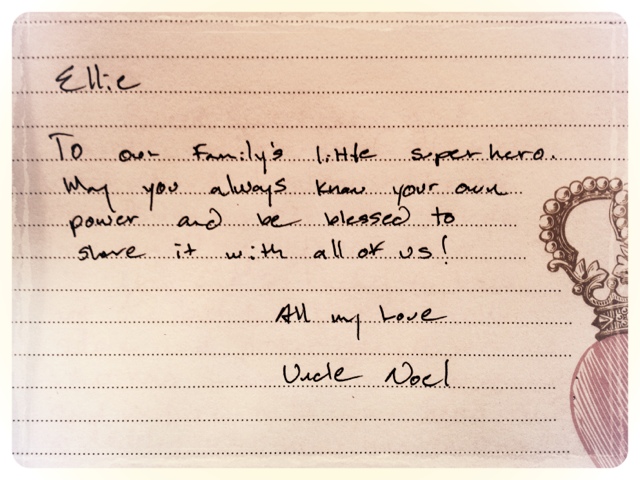 Ellie
To our Family's little superhero.
May you always know your own
power and be blessed to
share it with all of us!
All my Love
Uncle Noel